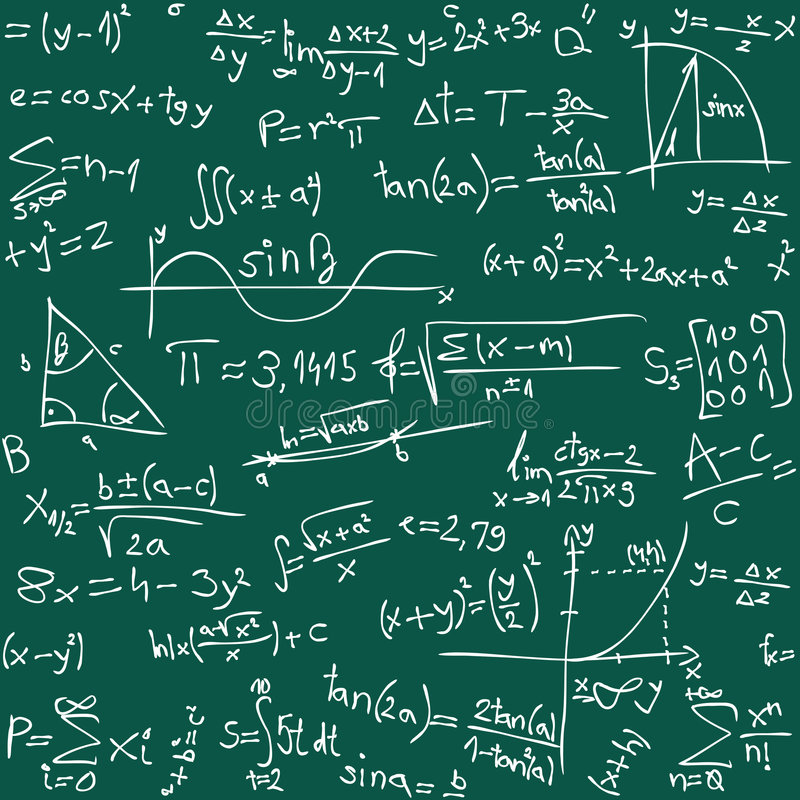 = (y-1)²
Δx/Δy = lim ∞ Δx+2/Δy-1
y = 2x²+3x
Q"
y = x/z
x
e = cosx + tgy
P = r²π
Δt = T - 3a/x
y
sinx
Σ s→∞ = n-1
∬(x ± a²)
tan(2a) = tan(a)/tan²(a)
y = Δx/Δz
+ y² = z
y
sinβ
x
(x+a)² = x² + 2ax + a²
x²
b β c
α
a
π ≈ 3,1415
f = √Σ(x-m)/n±1
S₃ = [1 0 0
1 0 1
0 0 1]
dreamstime
ln = √axb
a b
B
X₁/₂ = b±(a-c)/√2a
lim x→1 ctgx-2/2π×3
A-C/C =
∫ = √x+a²/x
e = 2,79
y
(4,4)
x
8x = 4 - 3y²
(x+y)² = (y/2)²
y = Δx/Δz
(x-y²)
ln|x(a-√x²/x) + c
fx =
P = Σ i=0 ∞ xi
a+b=c
S = ∫ t=2 10 5t dt
tan(2a) = 2tan(a)/1-tan²(a)
x→∞ y
+∞
Σ n=0 xⁿ/n!
sinα = b
(x+4)